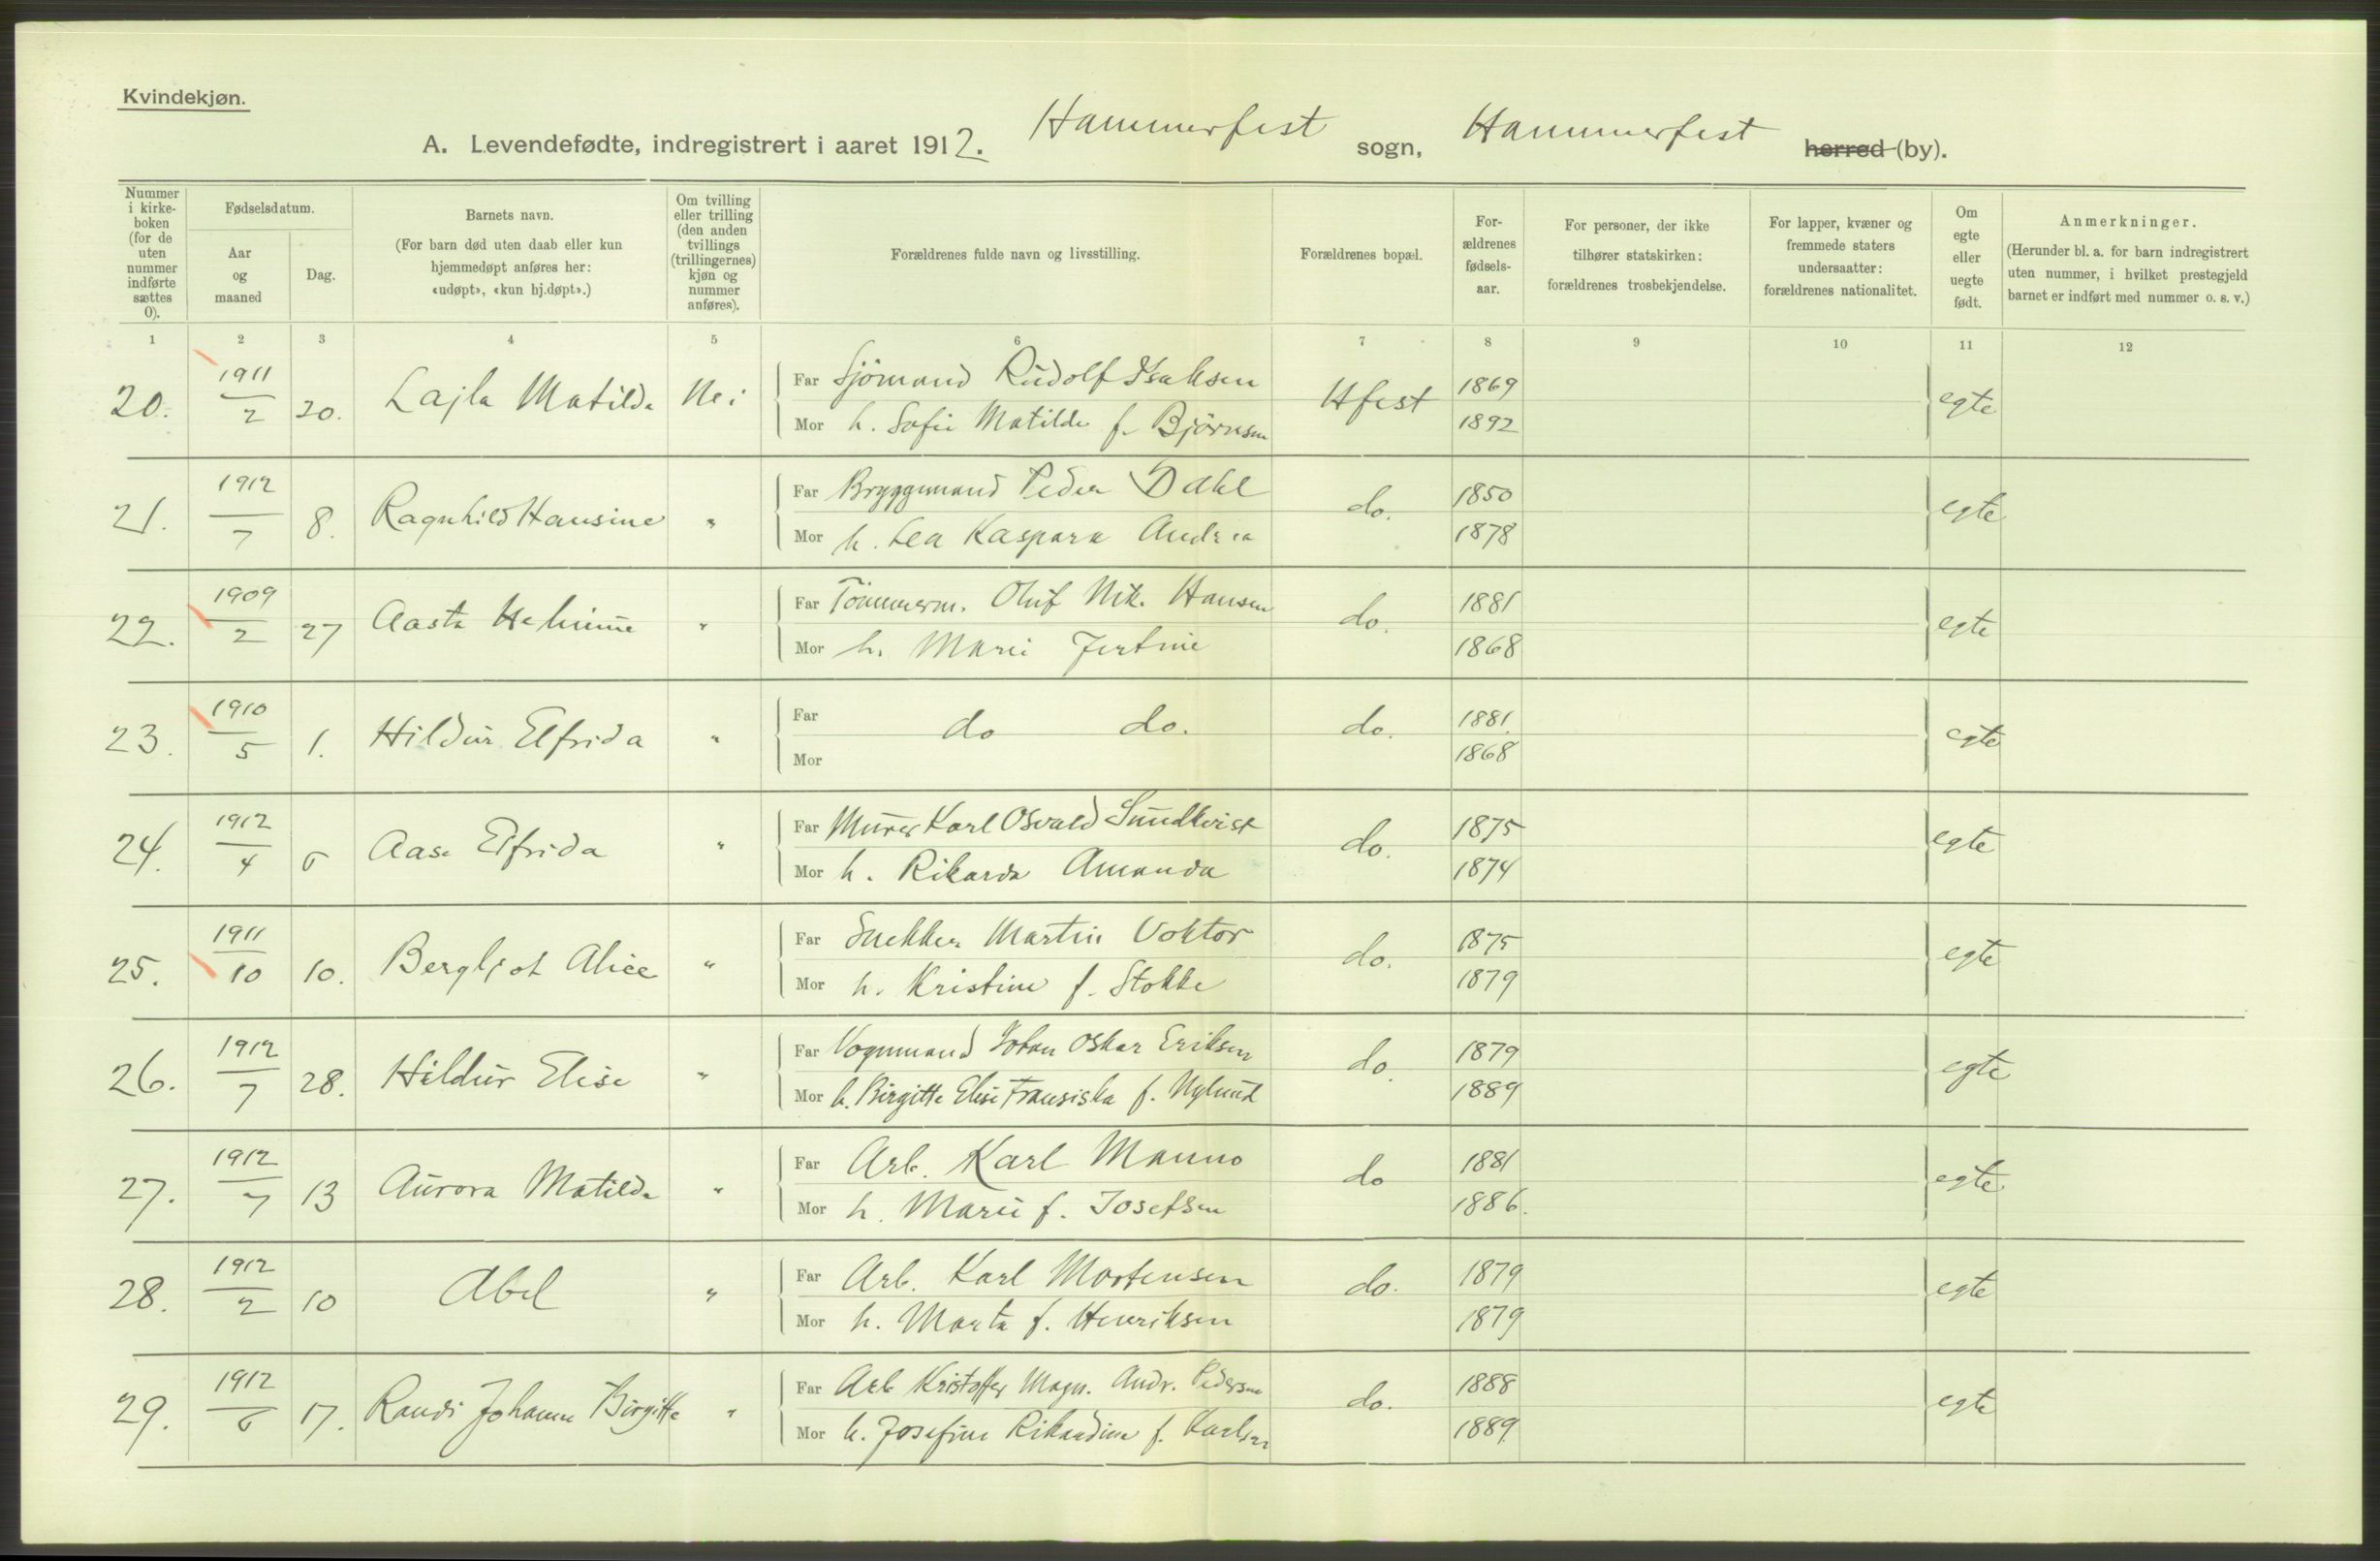 Kvindekjøn.
A. Levendefødte, indregistrert i aaret 1912. Hammerfest sogn, Hammerfest herred (by).
Nummer i kirke-boken (for de uten nummer indførte sættes 0).
Fødselsdatum.
Aar og maaned
Dag.
Barnets navn.
(For barn død uten daab eller kun hjemmedøpt anføres her: «udøpt», «kun hj.døpt».)
Om tvilling eller trilling (den anden tvillings (trillingernes) kjøn og nummer anføres).
Forældrenes fulde navn og livsstilling.
Forældrenes bopæl.
For-ældrenes fødsels-aar.
For personer, der ikke tilhører statskirken: forældrenes trosbekjendelse.
For lapper, kvæner og fremmede staters undersaatter: forældrenes nationalitet.
Om egte eller uegte født.
Anmerkninger.
(Herunder bl. a. for barn indregistrert uten nummer, i hvilket prestegjeld barnet er indført med nummer o. s. v.)
1 2 3 4 5 6 7 8 9 10 11 12
20. 1911/2 20. Lajla Matilda Nei Far Sjömand Rudolf Isaksen Hfest 1869 egte
Mor h. Sofie Matilde f. Björnsen 1892
21. 1912/7 8. Ragnhild Hansine " Far Bryggemand Peder Dahl do. 1850 egte
Mor h. Lea Kaspara Andrea 1878
22. 1909/2 27 Aasta " Far Tömmerm. Oluf Nik. Hansen do. 1881 egte
Mor h. Marie 1868
23. 1910/5 1. Hildur Elfrida " Far do do. do. 1881. egte
Mor 1868
24. 1912/4 6 Aase Elfrida " Far Murer Karl Osvald Sundkvist do. 1875 egte
Mor h. Rikarda Amanda 1874
25. 1911/10 10. Bergljot Alice " Far Snekker Martin Voktor do. 1875 egte
Mor h. Kristine f. Stokke 1879
26. 1912/7 28. Hildur Elise " Far Vognmand Johan Oskar Eriksen do. 1879 egte
Mor h. Birgitte Elise Fransiska f. Nylund 1889
27. 1912/7 13 Aurora Matilde " Far Arb. Karl Manno do 1881 egte
Mor h. Marie f. Josefsen 1886.
28. 1912/2 10 Abel " Far Arb. Karl Mortensen do. 1879 egte
Mor h. Marta f. Henriksen 1879
29. 1912/6 17. Randi Johanne Birgitte " Far Arb Kristoffer Magn. Andr. Pedersen do. 1888 egte
Mor h. Josefine Rikardine f. Karlsen 1889